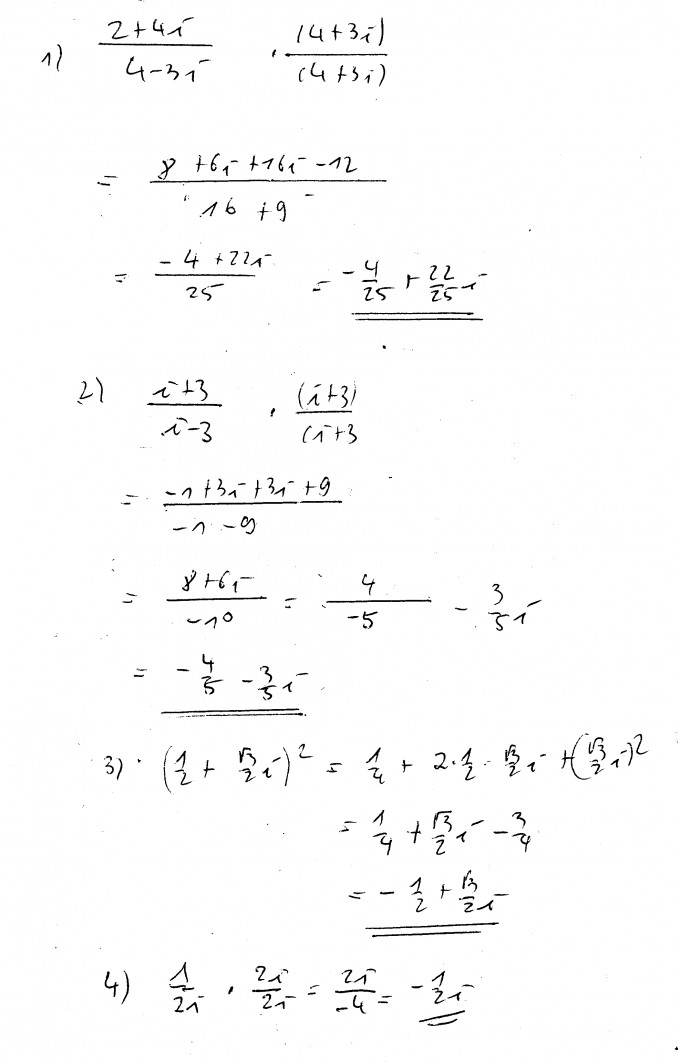 1) (2+4i)/(4-3i) · (4+3i)/(4+3i)
= (8+6i+16i-12)/(16+9)
= (-4+22i)/25 = -4/25 + 22/25 i
2) (i+3)/(i-3) · (i+3)/(i+3
= (-1+3i+3i+9)/(-1-9)
= (8+6i)/(-10) = 4/(-5) - 3/5 i
= -4/5 - 3/5 i
3) (1/2 + √3/2 i)² = 1/4 + 2·1/2·√3/2 i + (√3/2 i)²
= 1/4 + √3/2 i - 3/4
= -1/2 + √3/2 i
4) 1/2i · 2i/2i = 2i/-4 = -1/2 i